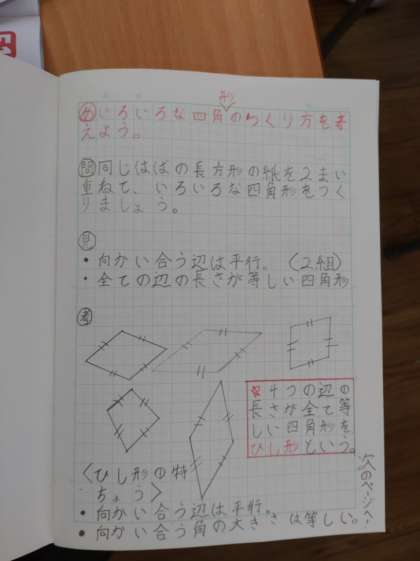 形
め いろいろな四角のつくり方を考
えよう。
問 同じはばの長方形の紙を2まい
重ねて、いろいろな四角形をつく
りましょう。
見
・向かい合う辺は平行。(2組)
・全ての辺の長さが等しい四角形
考
4つの辺の
長さが全て等
しい四角形を
ひし形という。
<ひし形の特
ちょう>
・向かい合う辺は平行。
・向かい合う角の大きさは等しい。
次のページへ